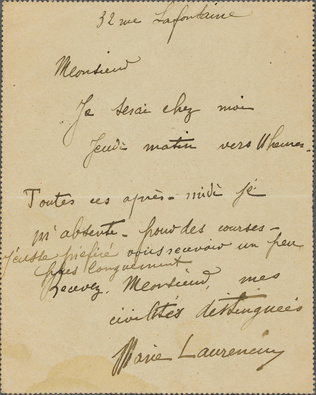 32 rue Lafontaine
Monsieur
Je serai chez moi
Jeudi matin vers 11 heures -
Toutes ces après-midi je
m'absente - pour des courses -
J'eusse préféré vous recevoir un peu
plus longuement
Recevez, Monsieur, mes
civilités distinguées
Marie Laurencin